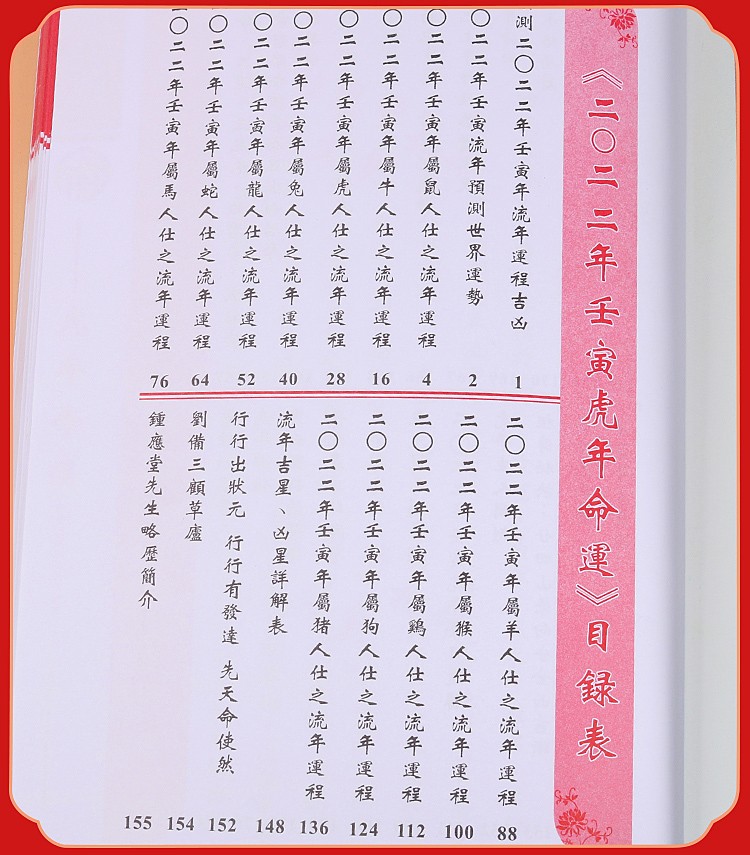 《二〇二二年壬寅虎年命運》目録表
測二〇二二年壬寅年流年運程吉凶 1
〇二二年壬寅流年預測世界運勢 2
〇二二年壬寅年屬鼠人仕之流年運程 4
〇二二年壬寅年屬牛人仕之流年運程 16
〇二二年壬寅年屬虎人仕之流年運程 28
〇二二年壬寅年屬兔人仕之流年運程 40
〇二二年壬寅年屬龍人仕之流年運程 52
〇二二年壬寅年屬蛇人仕之流年運程 64
〇二二年壬寅年屬馬人仕之流年運程 76
二〇二二年壬寅年屬羊人仕之流年運程 88
二〇二二年壬寅年屬猴人仕之流年運程 100
二〇二二年壬寅年屬鷄人仕之流年運程 112
二〇二二年壬寅年屬狗人仕之流年運程 124
二〇二二年壬寅年屬猪人仕之流年運程 136
流年吉星、凶星詳解表 148
行行出狀元 行行有發達 先天命使然 152
劉備三顧草廬 154
鍾應堂先生略歷簡介 155